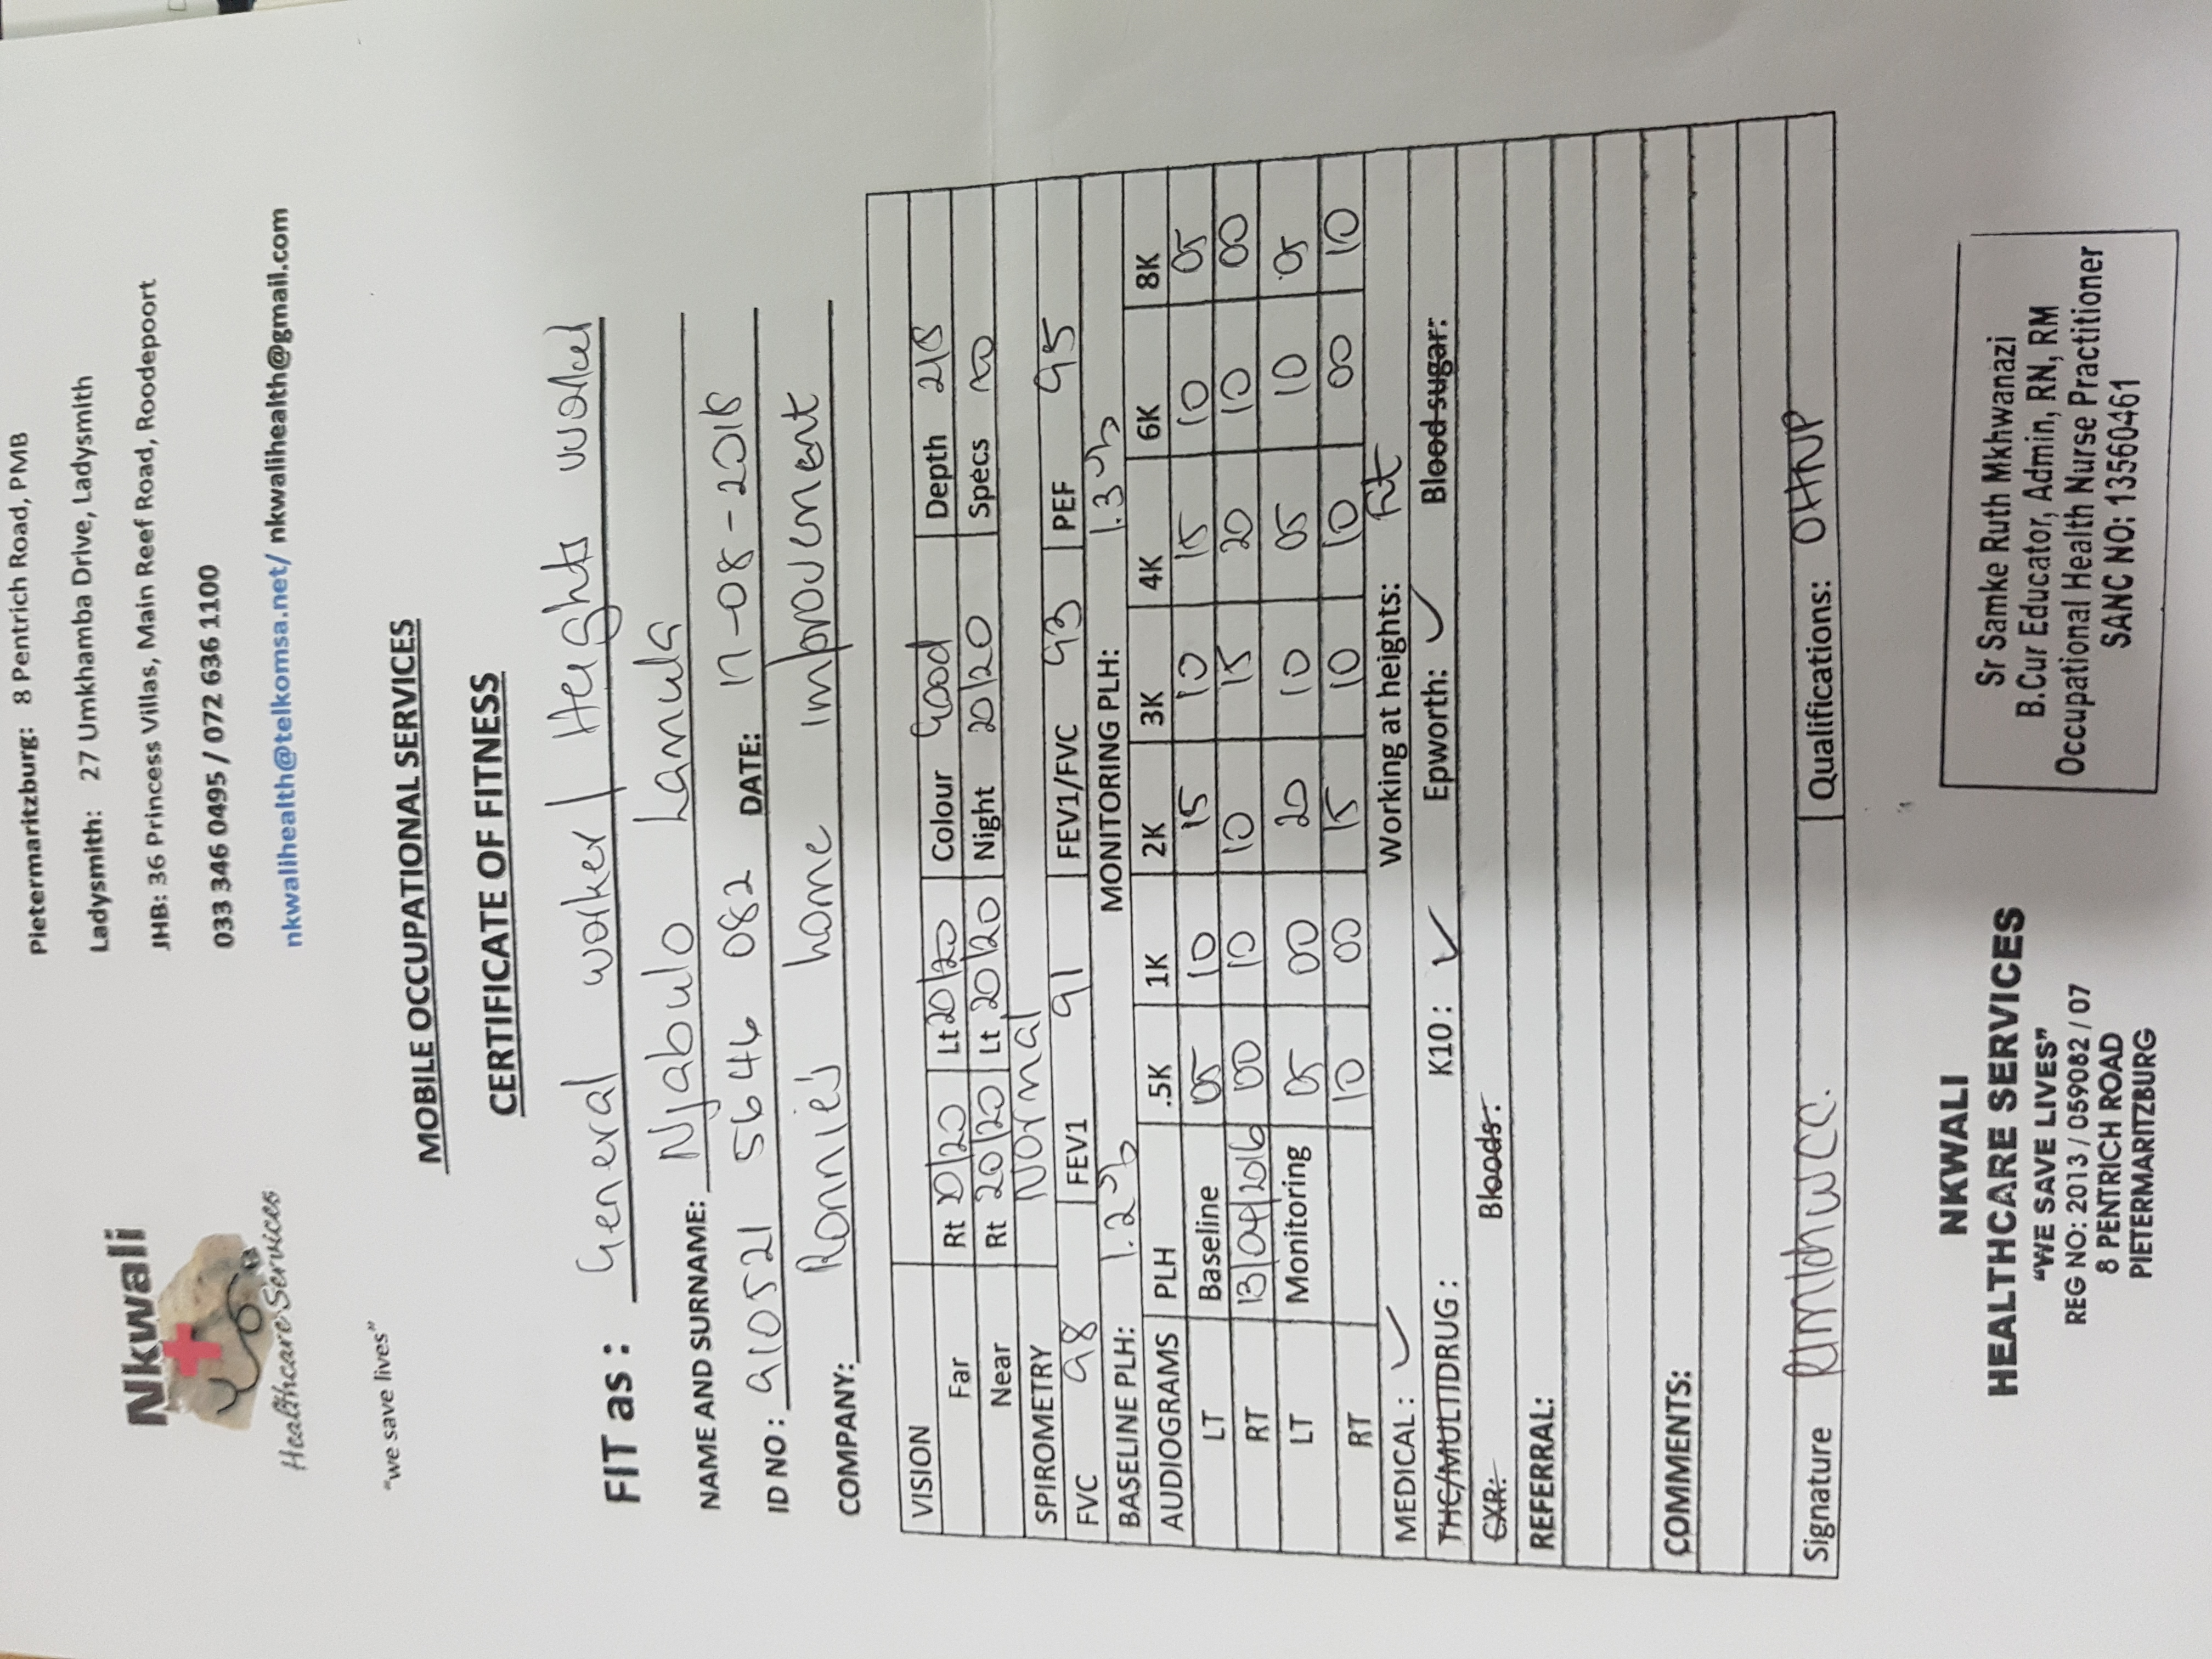 Nkwali
Healthcare Services
"we save lives"
Pietermaritzburg: 8 Pentrich Road, PMB
Ladysmith: 27 Umkhamba Drive, Ladysmith
JHB: 36 Princess Villas, Main Reef Road, Roodepoort
033 346 0495 / 072 636 1100
nkwalihealth@telkomsa.net/ nkwalihealth@gmail.com
MOBILE OCCUPATIONAL SERVICES
CERTIFICATE OF FITNESS
FIT as : General worker / Heights
NAME AND SURNAME: Njabulo Lamula
ID NO : 910521 5644 082 DATE: 17-08-2018
COMPANY: Ronnie's home improvement
VISION
Far Rt 20/20 Lt 20/20 Colour Good Depth 218
Near Rt 20/20 Lt 20/20 Night 20/20 Specs no
SPIROMETRY Normal
FVC 98 FEV1 91 FEV1/FVC 93 PEF 95
BASELINE PLH: 1.2% MONITORING PLH: 1.3%
AUDIOGRAMS PLH .5K 1K 2K 3K 4K 6K 8K
LT Baseline 05 10 15 10 15 10 05
RT 13/04/2016 00 10 10 15 20 10 00
LT Monitoring 05 00 20 10 05 10 05
RT 10 00 15 10 10 00 10
MEDICAL : ✓ Working at heights: Fit
THC/MULTIDRUG : K10 : ✓ Epworth: ✓ Blood sugar:
CXR: Bloods:
REFERRAL:
COMMENTS:
Signature Qualifications: OHNP
NKWALI
HEALTHCARE SERVICES
"WE SAVE LIVES"
REG NO: 2013 / 059082 / 07
8 PENTRICH ROAD
PIETERMARITZBURG
Sr Samke Ruth Mkhwanazi
B.Cur Educator, Admin, RN, RM
Occupational Health Nurse Practitioner
SANC NO: 13560461